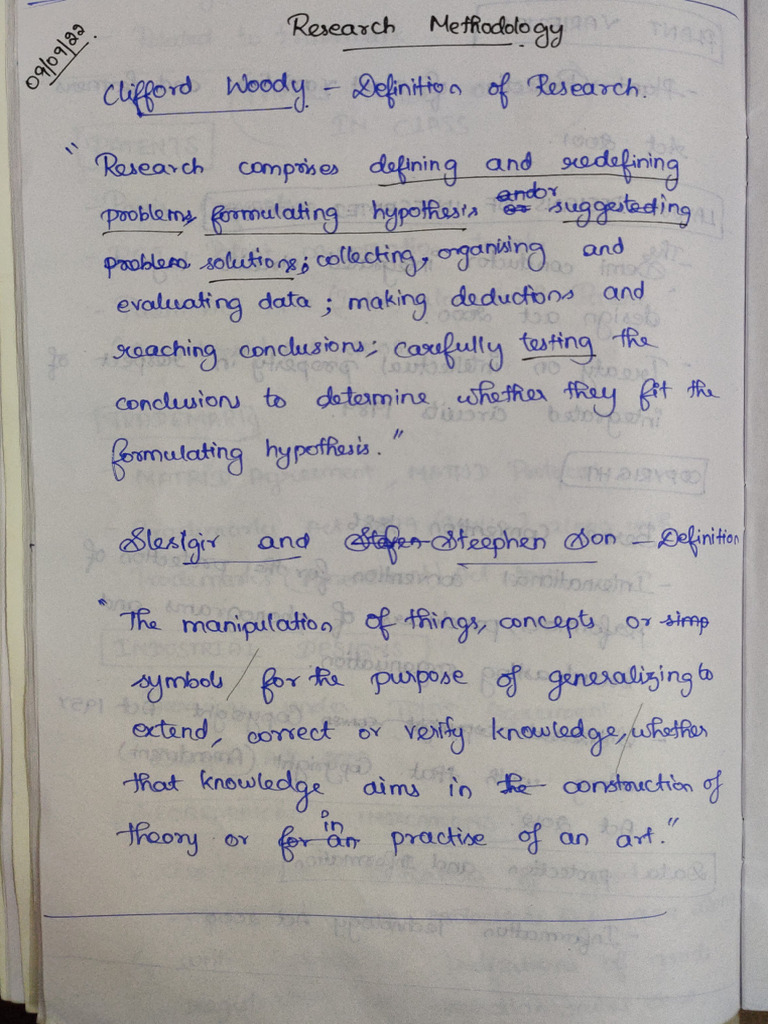 09/09/22.
Research Methodology
Clifford Woody - Definition of Research.
"Research comprises defining and redefining
problems, formulating hypothesis or and or suggesteding
problem solutions; collecting, organising and
evaluating data; making deductions and
reaching conclusions; carefully testing the
conclusions to determine whether they fit the
formulating hypothesis."
Sleslgir and Stefen Steephen Son - Definition
"The manipulation of things, concepts or simp
symbols / for the purpose of generalizing to
extend, correct or verify knowledge, / whether
that knowledge aims in the construction of
theory or for an in practise of an art."